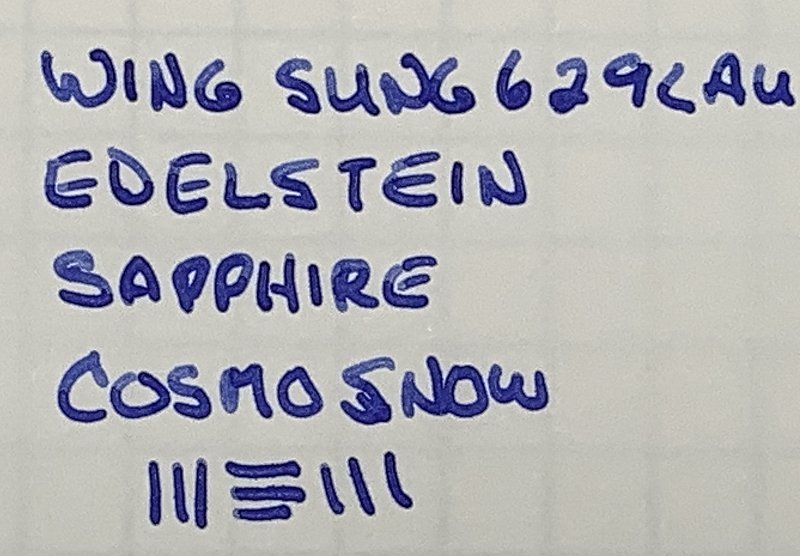 WING SUNG 629<AU
EDELSTEIN
SAPPHIRE
COSMO SNOW